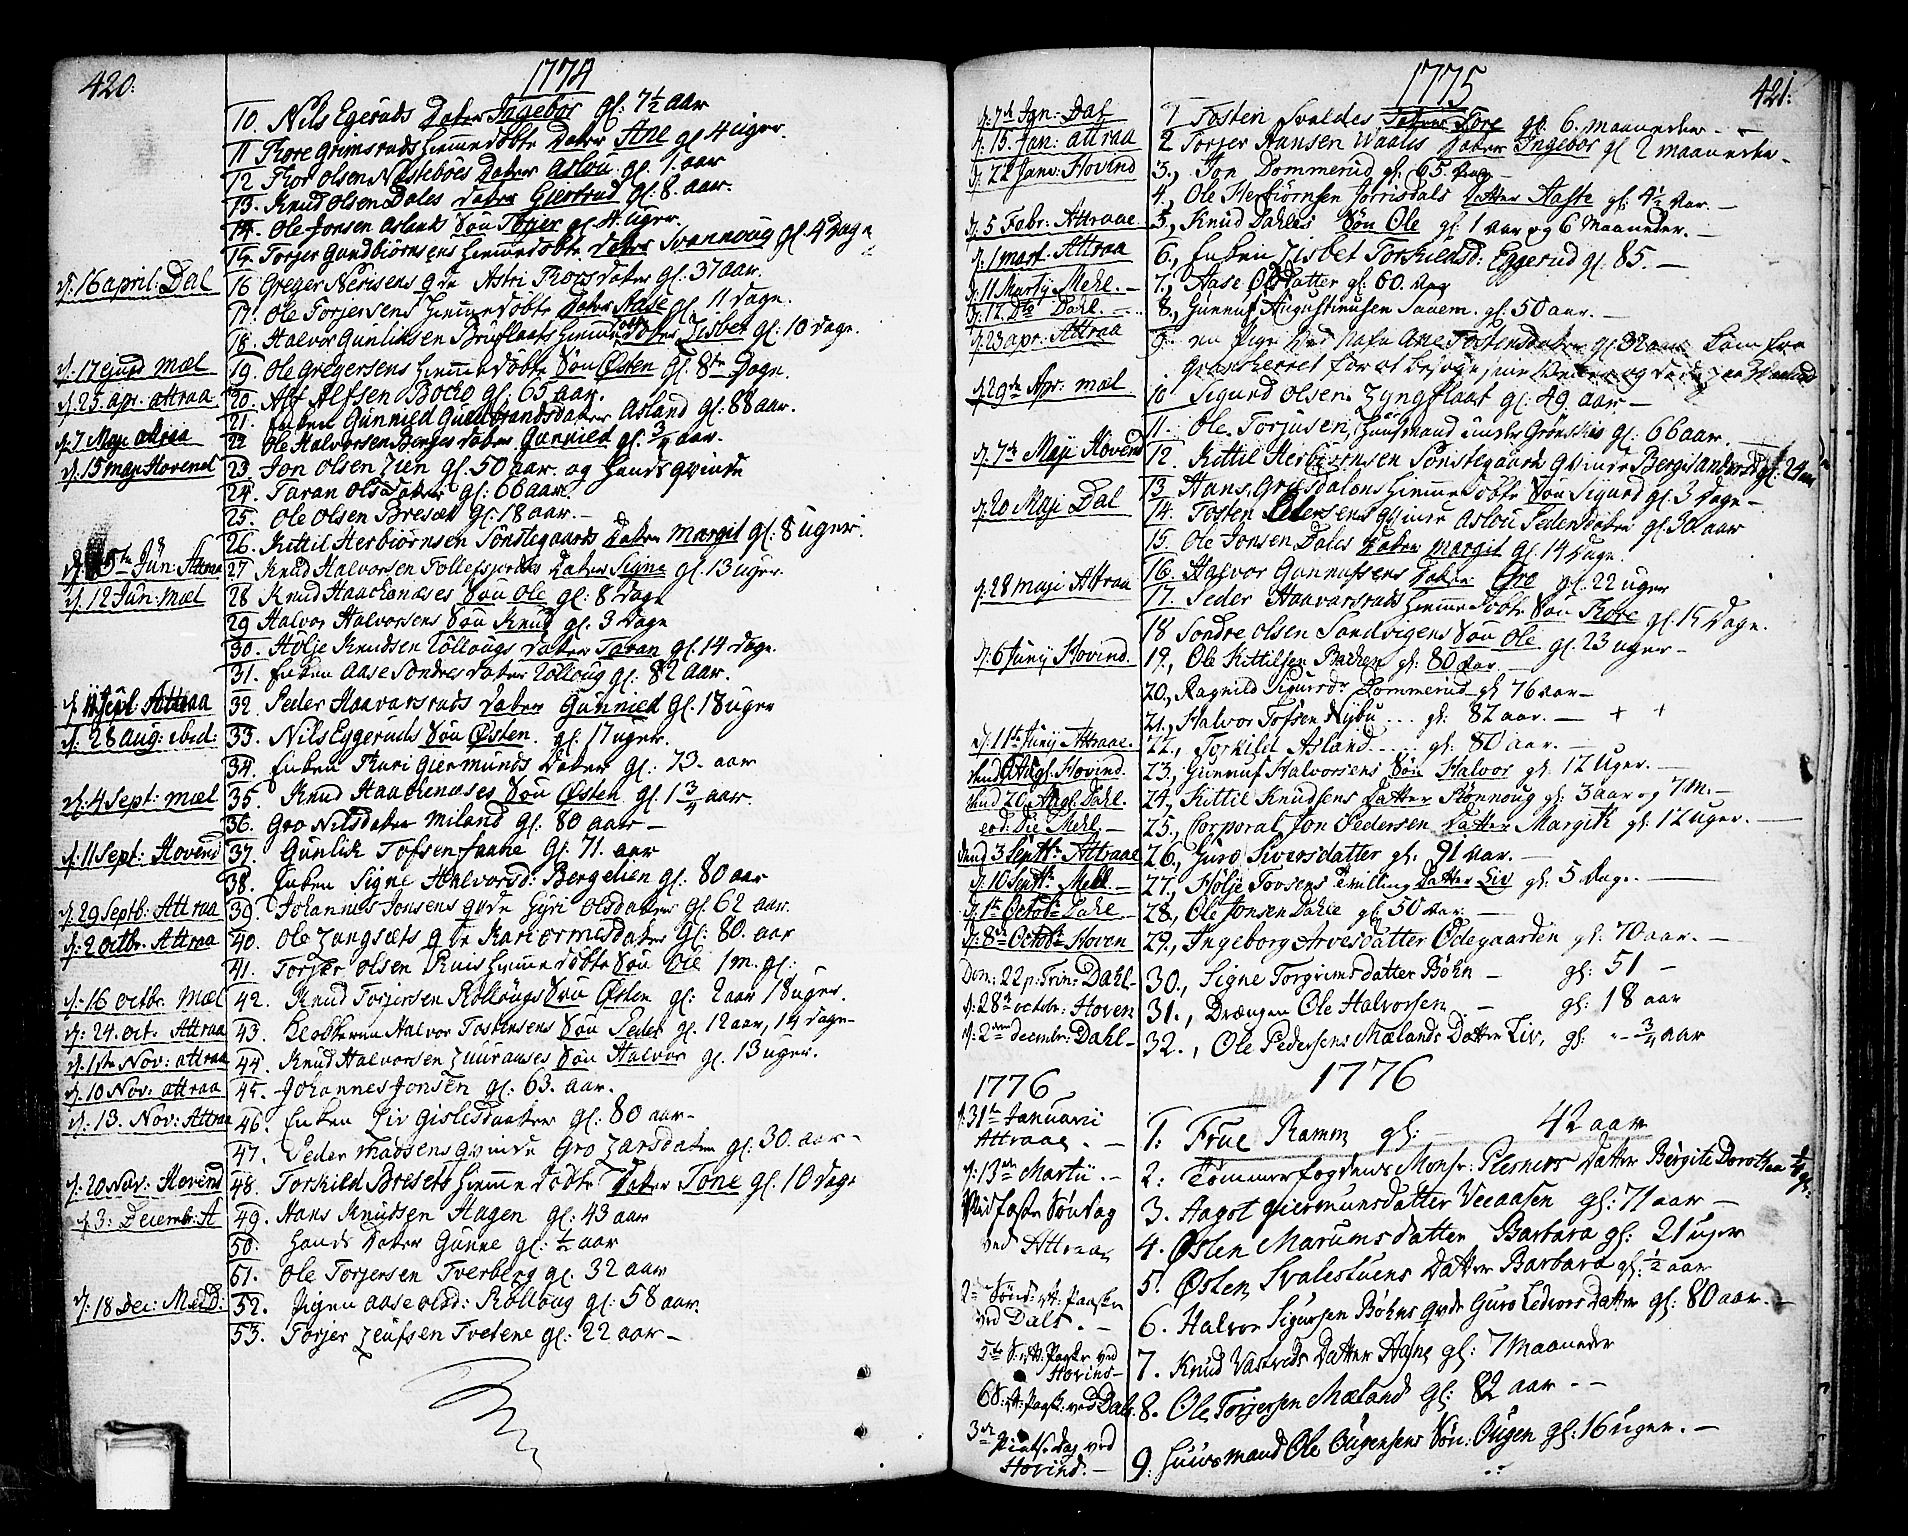 420.
1774
10. Nils Egeruds Dater Ingebor gl: 7½ aar
11 Thore Grimsruds hiemmedøbte Dater Ane gl 4 uger.
12 Thor Olsen Næsteböes Dater Aslou gl. 1 aar
13. Knud Olsen Dales Dater Giertrud gl: 8. aar.
14. Ole Jonsen Aslands Søn Torjer gl. 4 uger.
15. Torjer Gundbiörnsens hiemmedöbte Dater Svannoug gl 4 Dage
d: 16 april. Dal
16 Greger Nerisens qde Astri Thorsdater gl: 37 aar.
17. Ole Torjersens hiemmedöbte Dater Aase gl 11 dage.
18. Halvor Gunliksen Bruflaats hiemmedöbte Dater Lisbet gl: 10 dage.
d: 17 Mæl
19. Ole Gregersens hiemmedöbte Søn Østen gl: 8te Dage.
d: 25. apr. attraa
20. Alf Alfsen Bocko gl: 65 aar.
21. Enken Gunnied Gulbrandsdater Asland gl: 88 aar.
d: 7 Maji attraa
22 Ole Halvorsen Berges Dater Gunnied gl. ¾ aar.
d: 15 maji Hovend
23 Jon Olsen Lien gl. 50 aar. og hands qvinde
24. Taran Olsdater gl: 66 aar.
25. Ole Olsen Bresæt gl: 18 aar. –
26. Kittil Herbiörnsen Sönstegaards Dater Margit gl: 8 uger.
d: 5te Jun: Attraa
27 Knud Halvorsen Dater Signe gl. 13 uger.
d. 12 Jun: Mæl
28 Knud Haackenæses Søn Ole gl: 8 Dage
29 Halvor Halvorsens Søn Knud gl. 3 Dage
30. Hölje Knudsen Rollougs Dater Taran gl. 14 dage.
31. Enken Aase Sondresdater Rolloug gl: 82 aar.
Attraa
32. Peder Haavarsruds Dater Gunnied gl. 18 uger
d: 28 aug: ibid:
33. Nils Eggeruds Søn Østen. gl. 17 uger.
34. Enken Kari Giermunds Dater gl: 73. aar
d: 4 Sept: Mæl
35. Knud Haackenæses Søn Østen gl. 1¾ aar.
36. Gro Nilsdater Miland gl: 80 aar –
d. 11 Sept: Hovend
37. Gunlik Tofsen Faahe gl: 71. aar
38. Enken Signe Halvorsd: Bergelien gl: 80 aar
d. 29 Septb: Attraa
39. Johannes Jonsens qvde Gyri Olsdater gl: 62 aar.
d: 2 octbr. Attraa
40. Ole qde Kari Ormesdater gl: 80. aar
41. Torjer Olsen Ruis hiemmedöbte Søn Ole 1 m. gl:
d: 16 octbr. Mæl
42. Knud Torjersen Rollougs Søn Østen gl: 2 aar 18 uger.
d: 24. oct. Attraa
43. Klokkeren Halvor Tostensens Søn Peder gl. 12 aar, 14 dage –
d: 1ste Nov: attraa
44. Knud Halvorsen Søn Halvor gl. 13 uger.
d. 10 Nov: attraa
45. Johannes Jonsen gl: 63. aar.
d. 13. Nov: Attraa
46. Enken Liv Gislisdaater gl: 80 aar –
47. Peder Madsens qvinde Gro Larsdater gl: 30. aar –
d: 20 Nov: Hovend
48. Torskild Bresets hiemmedöbte Dater Tone gl. 10 Dage
d 3: Decemb: A
49. Hans Knudsen Hagen gl: 43 aar
50. hands Dater Gunne gl: ½ aar
51. Ole Torjersen Tverberg gl: 32 aar
d: 18 Dec: Mæl:
52. Pigen Aase Olsd: Rolloug gl: 58 aar.
53. Torjer Leufsen Tvetene gl: 22 aar –
421.
1775
d: 7de Jan: Dal
1 Tosten Svaldes Dater Tore gl: 6. maaneder. –
d. 15. Jan: attraa
2 Torjer Hansen Waales Dater Ingebor gl 2 maaneder.
d: 22 Janv: Hovind
3., Jon Dommerud gl: 65 aar –
4., Ole Herbiörnsen Jorisdals Datter Aaste gl: 4½ aar. –
d. 5 Febr: Attraae
5., Knud Dahles Søn Ole gl: 1 aar og 6 Maaneder. –
d. 1 mart. Attraa
6., Enken Lisbet Torkieldsd: Eggerud gl: 85. –
d: 11 Martij Mehl. –
7., Aase Olsdatter gl: 60. aar
d: 12. Dto Dahl. –
8., Gunnuf Augustinusen Saaem. gl. 50 aar. –
d 23 apr: Attraa
9. en Pige ved Nafn Ane Tostensdater gl 32 aar Som fra
Gransherret for at besøge sine
d. 29de Apr: mæl
10 Sigurd Olsen. Lyngflaat gl. 49 aar –
11. Ole. Torjusen, huusmand under Grönskei gl: 66 aar.
d. 7de Maji Hovend
12. Kittil Herbiörnsen Sönstegaards qvinde Bergit Andersd gl. 24 aar
13. Hans Grösdalens hiemmedöbte Søn Sigurd gl. 3 Dage –
d. 20 Maji Dal
14. Tosten Pedersens qvinde Aslou Pedersdater gl. 30 aar
15. Ole Jonsen Dales Dater Margit gl. 14 Dage
16. Halvor Gunnufsens Dater Gro gl. 22 uger
d: 28 maji Attraa
17. Peder Haavarsruds hiemmedöbte Søn Thore gl. 15 Dage.
18 Sondre Olsen Sandvigens Søn Ole gl. 23 uger –
d: 6 Junij Hovind.
19., Ole Kittilsen Backen gl. 80 aar –
20., Ragnild Sigursdr Dommerud gl 76 aar –
21., Halvor Tofsen Nybu ... gl: 82 aar. – + +
d. 11te Junij Attraae.
22., Torkild Asland .... gl: 80 aar. –
Augl. Hovind.
23., Gunnuf Halvorsens Søn Halvor gl. 12 Uger. –
dend 20. Augl. Dahl.
24., Kittil Knudsens Datter Rönnoug gl: 3 aar og 7 M. –
eod: Die Mehl. –
25., Corporal Jon Pedersen Datter Margith gl: 12 uger. –
dend 3 Septbr Attraae
26., Guro Siversdatter gl. 91 aar. –
d. 10 Septbr: Mehl. –
27., Hölje Tovsens Tvilling Datter Liv gl: 5 Dage. –
d. 1te Octobr: Dahl –
28., Ole Jonsen Dahle gl. 50 aar. –
d: 8de Octobr Hoven
29., Ingeborg Arvesdatter Ödegaarden gl: 70 aar. –
Dom: 22 p. Trin: Dahl –
30., Signe Torgrimsdatter Böhn – gl: 51 –
d: 28de octobr: Hoven
31., Drængen Ole Halvorsen – gl: 18 aar
d. 2den decembr: Dahl –
32., Ole Pedersens Mælands Datter Liv, gl: – ¾ aar
1776
1776
d. 31te Januarii
Attraae. –
1: Frue Ramm gl: – 42 aar
d. 13de Martii –
2: Tømmerfogdens Monsr: Plesners Datter Birgite Dorothea
Midfaste Søndag
ved Attraae
3. Aagot Giermunsdatter Veeaasen gl: 71 aar –
4. Østen Marumsdatter Barbara gl: 21 uger
5. Østen Svalestuens Datter Barbara gl: ½ aar
2den Sønd: Paaske
ved Dals. –
6. Halvor Sigursen Böhns qvde Guro Ledvorsdatter gl: 80 aar. –
5te S. Paaske ved
Hovind –
7. Knud Datter Aasne gl: 7 Maaneder
6 S. Pask. ved Dals.
8. Ole Torjersen Mæland gl: 82 aar – –
3de Pintsedag ved
Hovind. –
9: Huusmand Ole Ougensens Søn: Ougen gl: 16 uger. –